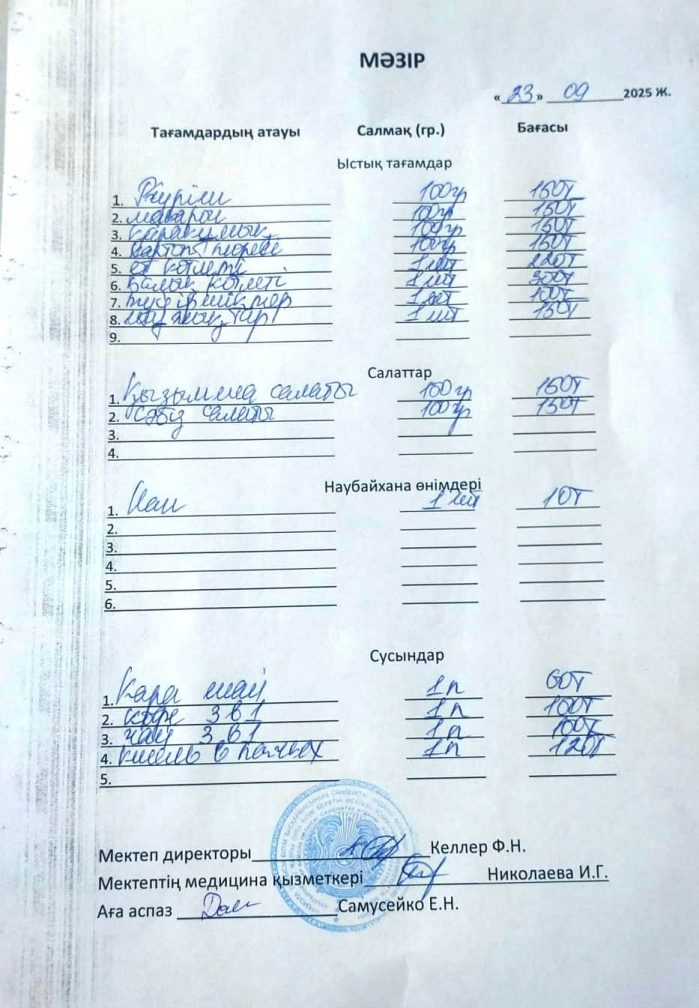 МӘЗІР
«23» 09 2025 Ж.
Тағамдардың атауы Салмақ (гр.) Бағасы
Ыстық тағамдар
1. Күріш 100гр 150т
2. макарон 100гр 150т
3. қарақұмық 100гр 150т
4. картоп пюреве 100гр 150т
5. ет котлеті 1 шт 220т
6. балық котлеті 1 шт 300т
7. 1 шт 100т
8. 1 шт 150т
9.
Салаттар
1. Қызылша салаты 100гр 150т
2. сәбіз салаты 100гр 130т
3.
4.
Наубайхана өнімдері
1. Нан 1 шт 10т
2.
3.
4.
5.
6.
Сусындар
1. Қара шай 1п 60т
2. кофе 3 в 1 1п 100т
3. чай 3 в 1 1п 100т
4. кисель в пачках 1п 120т
5.
Мектеп директоры Келлер Ф.Н.
Мектептің медицина қызметкері Николаева И.Г.
Аға аспаз Самусейко Е.Н.